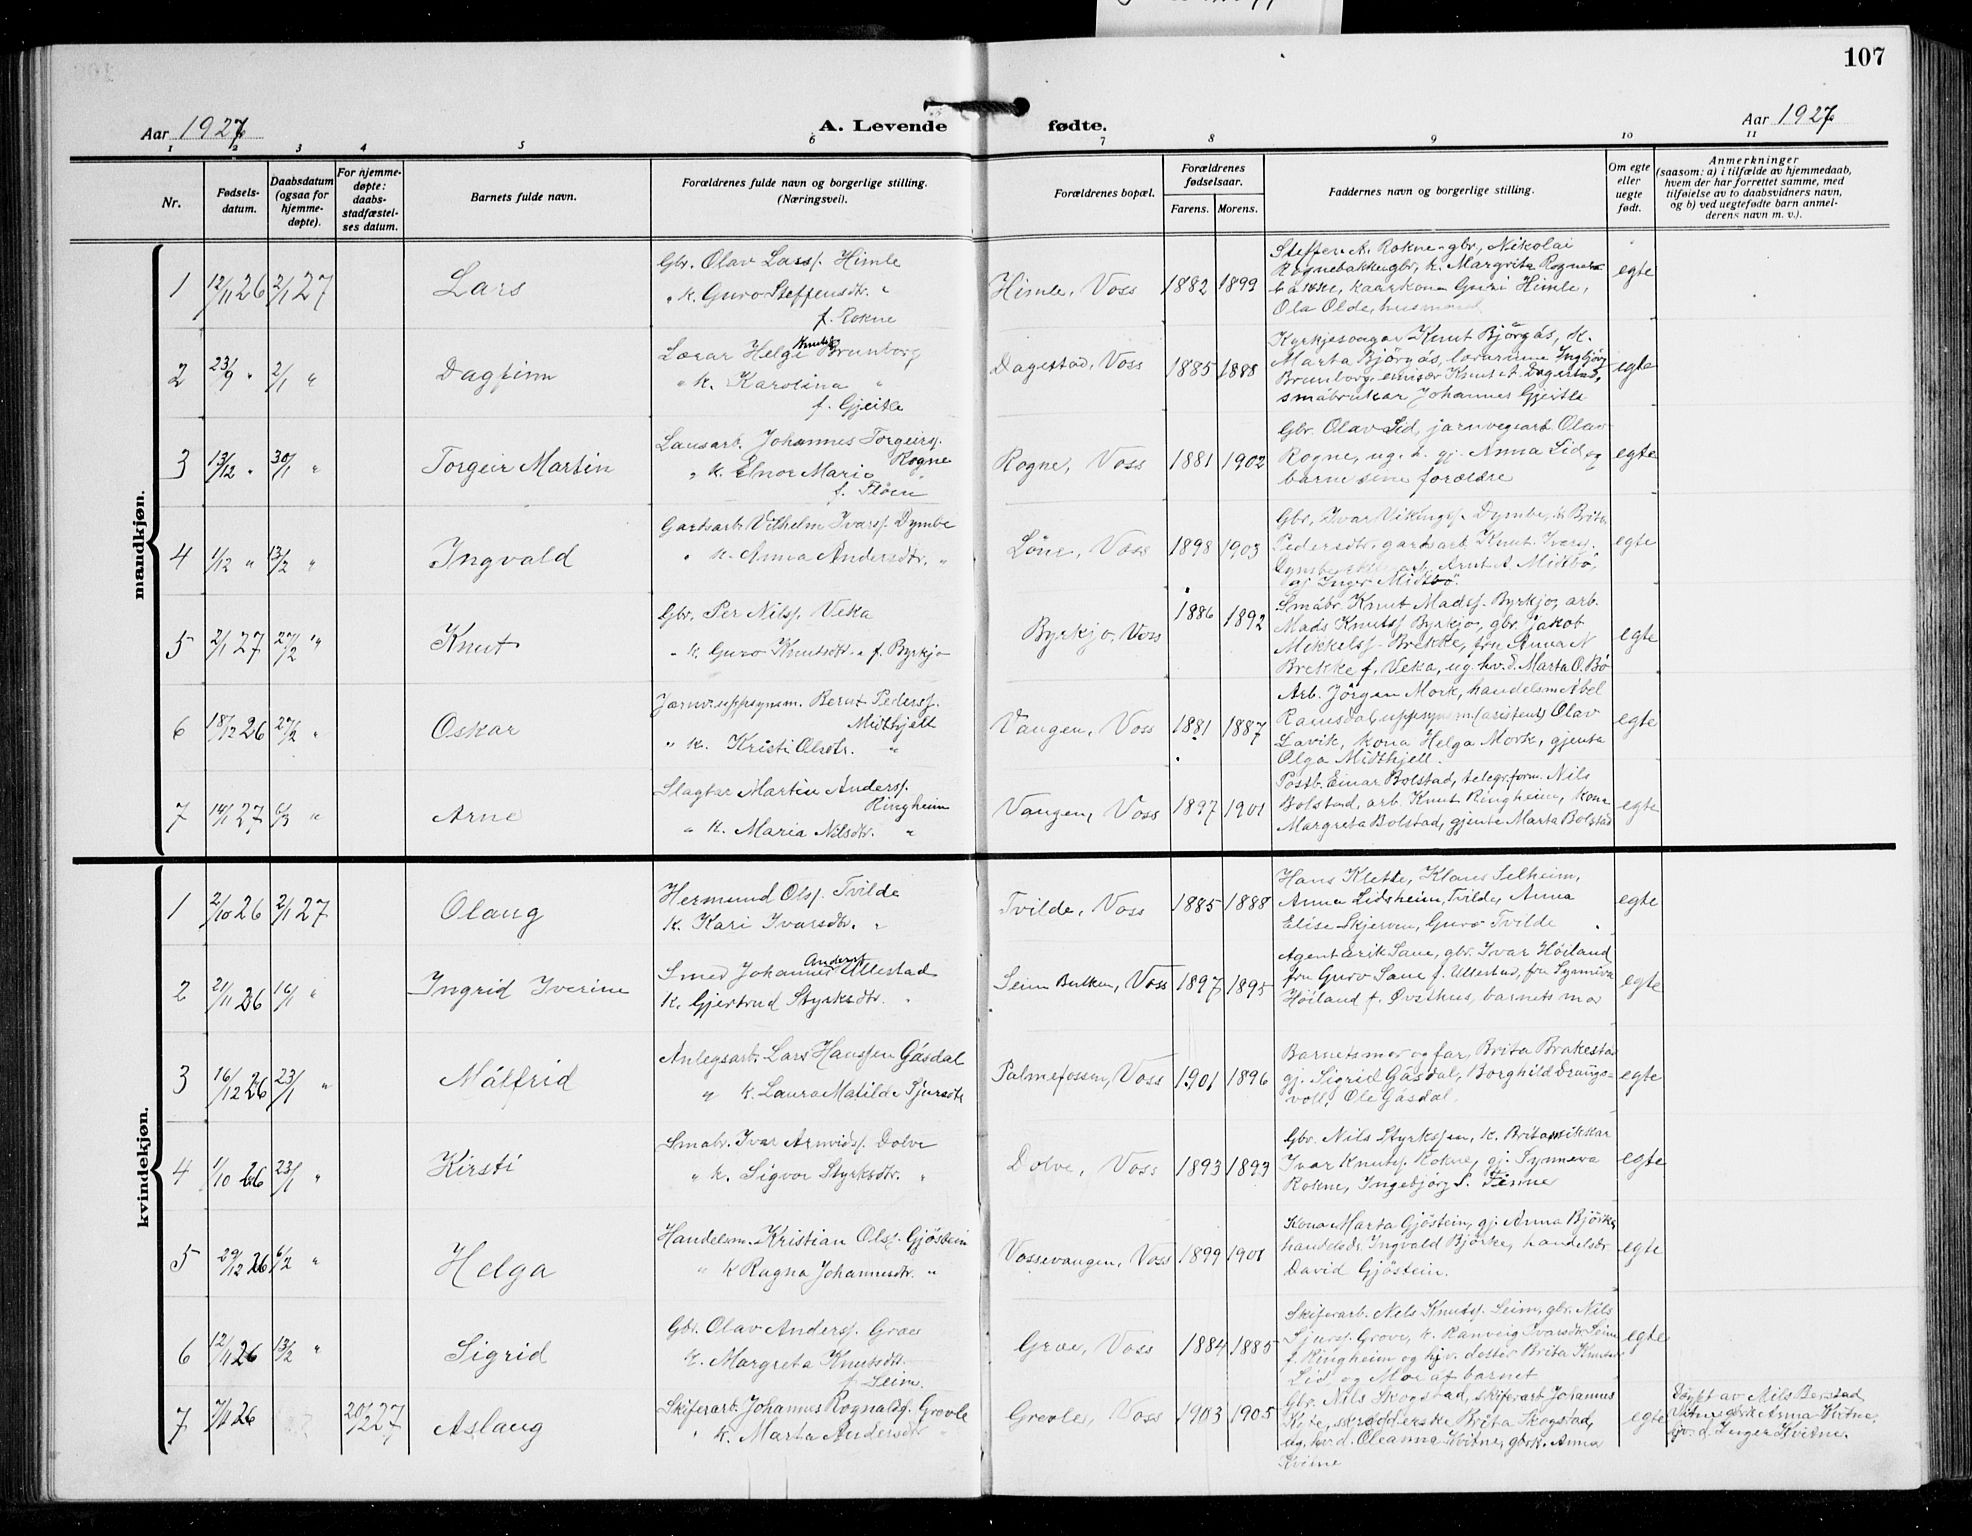 107
Aar 1927
A. Levende fødte.
Aar 1927
1 2 3 4 5 6 7 8 9 10 11
Nr.
Fødsels-
datum.
Daabsdatum
(ogsaa for
hjemme-
døpte).
For hjemme-
døpte:
daabs-
stadfæstel-
ses datum.
Barnets fulde navn.
Forældrenes fulde navn og borgerlige stilling.
(Næringsvei).
Forældrenes bopæl.
Forældrenes
fødselsaar.
Farens. Morens.
Faddernes navn og borgerlige stilling.
Om egte
eller
uegte
født.
Anmerkninger
(saasom: a) i tilfælde av hjemmedaab,
hvem der har forrettet samme, med
tilføielse av to daabsvidners navn,
og b) ved uegtefødte barn anmel-
derens navn m. v.).
mandkjøn.
1 12/11 26 2/1 27 Lars
Gbr. Olav Larss. Himle
" k. Guro Steffensdtr. "
f. Rokne
Himle, Voss 1882 1899
Steffen A. Rokne gbr, Nikolai
Rognebakke gbr, k. Margrita Rogne-
bakke, kaarkona Guri Himle,
Ola Olde, husmand
egte
2 23/9 " 2/1 " Dagfinn
Lærar Helge Knutss. Brunborg
" k. Karolina "
f. Gjeitle
Dagestad, Voss 1885 1888
Kyrkjesongar Knut Bjørgás, k.
Marta Bjørgás, lærarinne Ingbjørg
Brunborg, emisær Knut A. Dagestad,
småbrukar Johannes Gjeitle
egte
3 13/12 " 30/1 " Torgeir Martin
Lausarb. Johannes Torgeirs.
Rogne
" k. Elnor Marie "
f. Fløen
Rogne, Voss 1881 1902
Gbr. Olav Lid, jarnvegsarb. Olav
Rogne, ug. h. gj. Anna Lid og
barne sine forældre
egte
4 1/12 " 13/2 " Ingvald
Gardsarb. Vilhelm Ivarss. Dymbe
" k. Anna Andersdtr. "
Løne, Voss 1898 1903
Gbr. Ivar Vikingss. Dymbe, k. Brita
Pedersdtr. gardsarb. Knut Ivars.
Dymbe, arb. Arnt A. Midtbø,
gj Inger Midtbø.
egte
5 2/1 27 27/2 " Knut
Gbr. Per Nilss. Veka
" k. Guro Knutsdtr. " f. Byrkjo
Byrkjo, Voss 1886 1892
Småbr. Knut Madss. Byrkjo, arb.
Mads Knutss. Byrkjo, gbr. Jakob
Mikkelss. Brekke, fru Anna N
Brekke f. Veka, ug. hv. d. Marta O. Bø
egte
6 18/12 26 27/2 " Oskar
Jærnv. uppsynsm. Bernt Pederss.
Midthjell
" k. Kristi Olsdtr. "
Vangen, Voss 1881 1887
Arb. Jørgen Mork, handelsm. Abel
Ramsdal, uppsynsm. (asistent) Olav
Lavik, kona Helga Mork, gjenta
Olga Midthjell.
egte
7 14/1 27 6/3 " Arne
Slagtar Martin Anderss.
Ringheim
" k. Maria Nilsdtr. "
Vangen, Voss 1897 1901
Postb. Einar Bolstad, telegr.form. Nils
Bolstad, arb. Knut Ringheim, kona
Margreta Bolstad, gjenta Marta Bolstad
egte
kvindekjøn.
1 2/10 26 2/1 27 Olaug
Hermund Olss. Tvilde
k. Kari Ivarsdtr. "
Tvilde, Voss 1885 1888
Hans Klette, Klaus Selheim,
Anna Lidsheim, Tvilde, Anna
Elise Skjerven, Guro Tvilde
egte
2 21/11 26 16/1 " Ingrid Iverine
Smed Johannes Anders. Ullestad
k. Gjertrud Styrksdtr. "
Seim Bulken, Voss 1897 1895
Agent Erik Sane, gbr. Ivar Høiland
fru Guro Sane f. Ullestad, fru Synneva
Høiland f. Øvsthus, barnets mor
egte
3 16/12 26 23/1 " Målfrid
Anlegsarb. Lars Hanssen Gåsdal
" k. Laura Matilde Sjursdtr
Palmefossen, Voss 1901 1896
Barnets mor og far, Brita Brakestad
gj. Sigrid Gåsdal, Borghild Drangs-
voll, Ole Gåsdal.
egte
4 1/10 26 23/1 " Kirsti
Småbr. Ivar Arnvids. Dolve
" k. Sigvor Styrksdtr. "
Dolve, Voss 1893 1893
Gbr. Nils Styrkssen, k. Brita
Ivar Knutss. Rokne, gj. Synneva
Rokne, Ingebjørg S. Finne
egte
5 29/12 26 6/2 " Helga
Handelsm. Kristian Olss. Gjøstein
" k Ragna Johannesdtr. "
Vossevangen, Voss 1899 1901
Kona Marta Gjøstein, gj. Anna Bjørke
handelsdr. Ingvald Bjørke, handelsdr.
David Gjøstein.
egte
6 12/11 26 13/2 " Sigrid
Gbr. Olav Anderss. Groe
k. Margreta Knutsdtr.
f. Seim.
Groe, Voss 1884 1885
Skiferarb. Nels Knutss. Seim, gbr. Nils
Sjurss. Grove, k. Ranveig Ivarsdtr Seim
f. Ringheim og hjv. dotter Brita Knutsd.
Lid, og Mor af barnet
egte
7 7/11 26 20/2 27 Aslaug
Skiferarb. Johannes Rognaldss. Grevle
" k. Marta Andersdtr "
Grevle, Voss 1903 1905
Gbr. Nils Skogstad, skiferarb. Johannes
Kite, skrædderske Brita Skogstad,
ug. hv. d. Oleanna Kvitne, gbrk. Anna
Kvitne
egte
Døypt av Nils Berstad
Vitne gbrk Anna Kvitne,
hjv. d. Inger Kvitne.